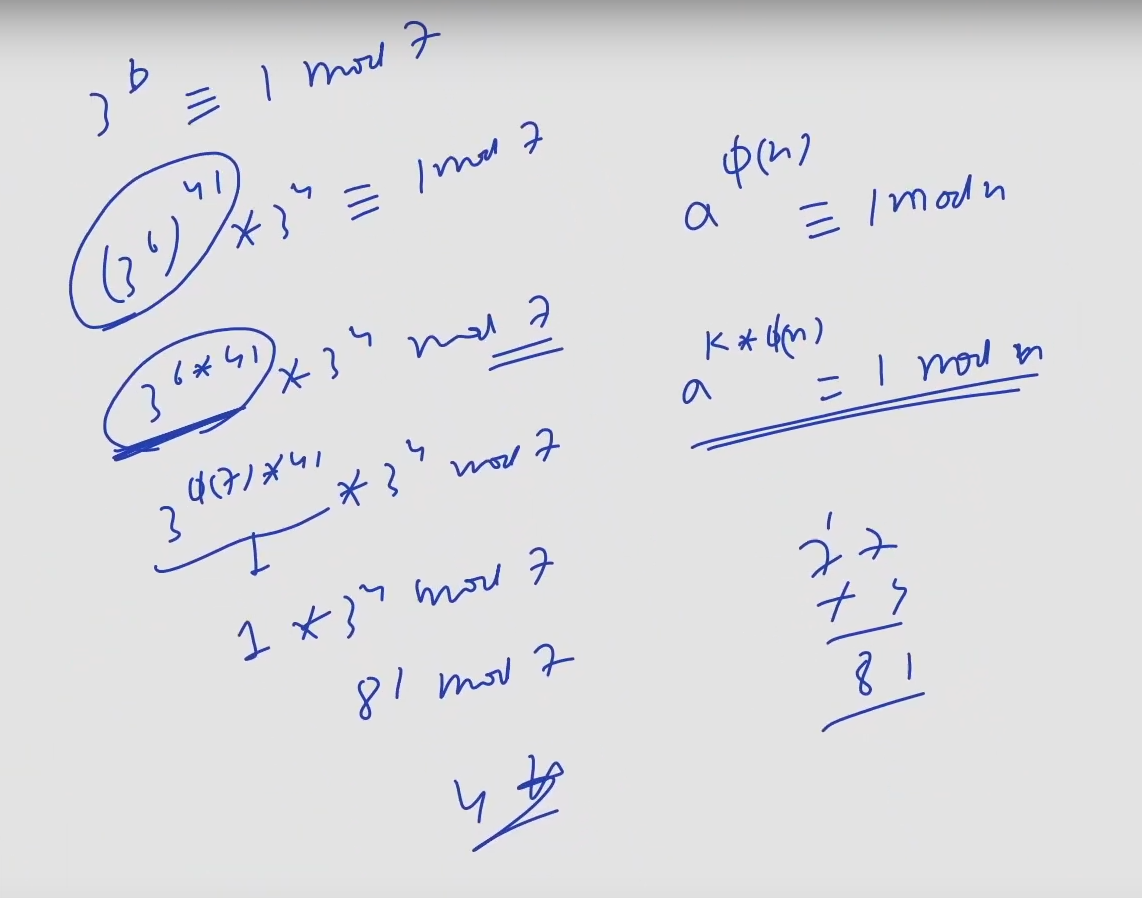 3^6 ≡ 1 mod 7
(3^6)^41 * 3^4 ≡ 1 mod 7
3^(6*41) * 3^4 mod 7
3^(φ(7)*41) * 3^4 mod 7
1
1 * 3^4 mod 7
81 mod 7
4
a^φ(n) ≡ 1 mod n
a^(K*φ(n)) = 1 mod n
1
27
* 3
81